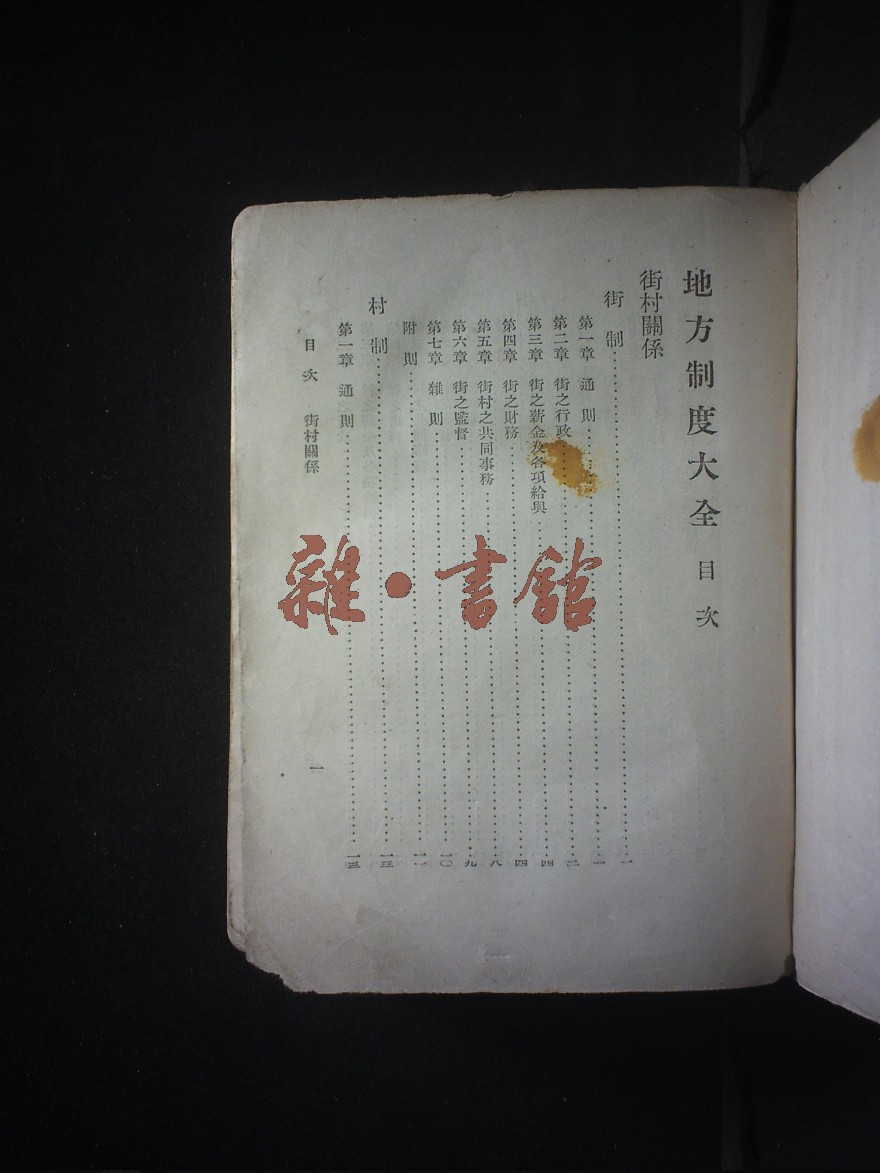 地方制度大全 目次
街村關係
街制……一
第一章 通則……一
第二章 街之行政……二
第三章 街之薪金及各項給與……四
第四章 街之財務……四
第五章 街村之共同事務……八
第六章 街之監督……九
第七章 雜則……一〇
附則……
村制……一三
第一章 通則……一三
目次 街村關係
一
雜·書館